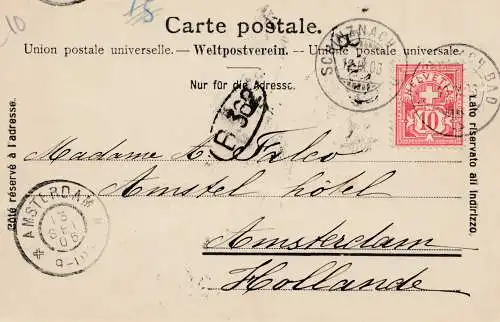 10
Carte postale.
Union postale universelle. — Weltpostverein. — Unione postale universale.
Nur für die Adresse.
SCHINZNACH
HELVETIA
10
Côté réservé à l'adresse.
Lato riservato all'indirizzo.
Madame A. Falco
Amstel hôtel
Amsterdam
Hollande
AMSTERDAM